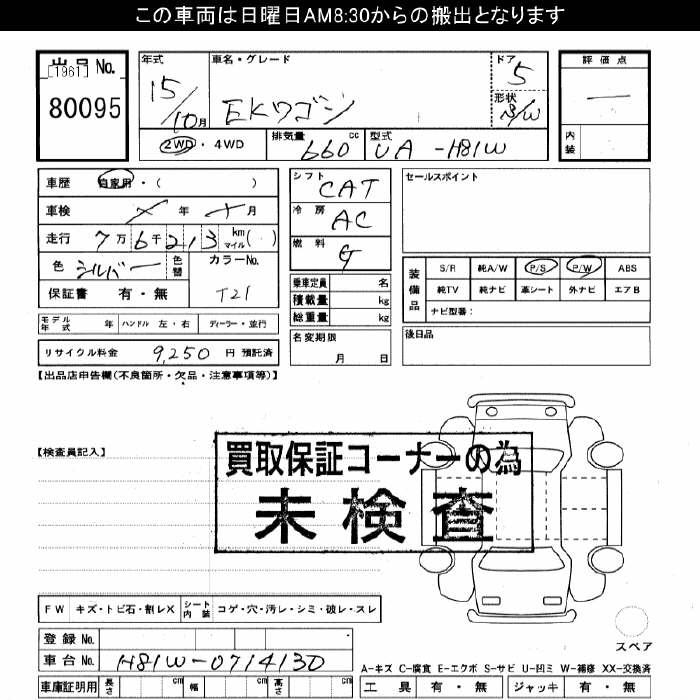 この車両は日曜日AM8:30からの搬出となります
出品 No.
[1961]
80095
年式
15/10月
車名・グレード
EKワゴン
ドア
5
形状
評価点
—
内装
2WD・4WD
排気量 660 cc
型式 UA -H81W
車歴 自家用・( )
車検 年 月
走行 7万6千213 km マイル( )
色 シルバー 色替
カラーNo.
T21
保証書 有・無
シフト CAT
冷房 AC
燃料 G
乗車定員 名
積載量 kg
総重量 kg
名変期限
月 日
セールスポイント
装備品
S/R 純A/W P/S P/W ABS
純TV 純ナビ 革シート 外ナビ エアB
ナビ型番:
後日品
モデル年式 年 ハンドル 左・右 ディーラー・並行
リサイクル料金 9,250 円 預託済
【出品店申告欄(不良箇所・欠品・注意事項等)】
【検査員記入】
買取保証コーナーの為
未検査
FW キズ・トビ石・割レX シート内装 コゲ・穴・汚レ・シミ・破レ・スレ
スペア
登録 No.
車台 No. H81W-0714130
A-キズ C-腐食 E-エクボ S-サビ U-凹ミ W-補修 XX-交換済
車庫証明用 長さ cm 幅 cm 高さ cm
工具 有・無 ジャッキ 有・無